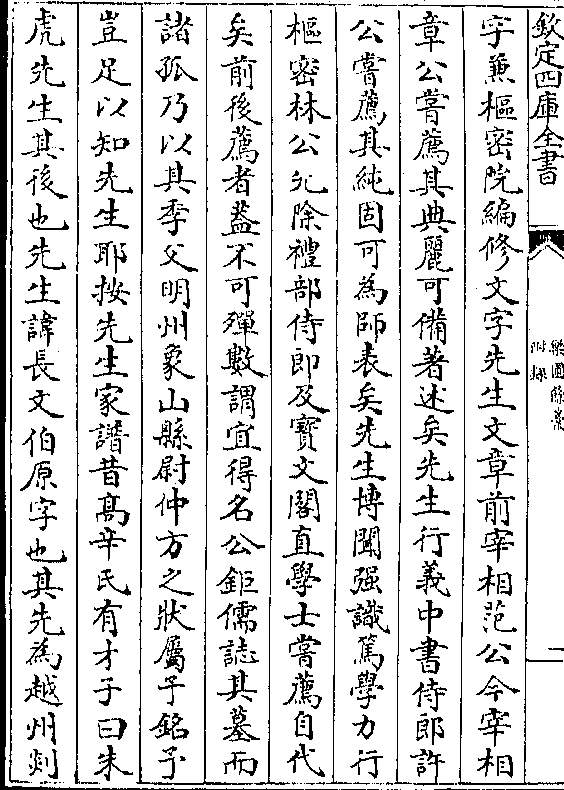 欽定四庫全書
樂圃餘藁
附録
一
字兼樞密院編修文字先生文章前宰相范公今宰相
章公嘗薦其典麗可備著述矣先生行義中書侍郎許
公嘗薦其純固可為師表矣先生博聞强識篤學力行
樞密林公允除禮部侍郎及寳文閣直學士嘗薦自代
矣前後薦者葢不可殫數謂宜得名公鉅儒誌其墓而
諸孤乃以其季父明州象山縣尉仲方之狀屬予銘予
豈足以知先生耶按先生家譜昔髙辛氏有才子曰朱
虎先生其後也先生諱長文伯原字也其先為越州剡